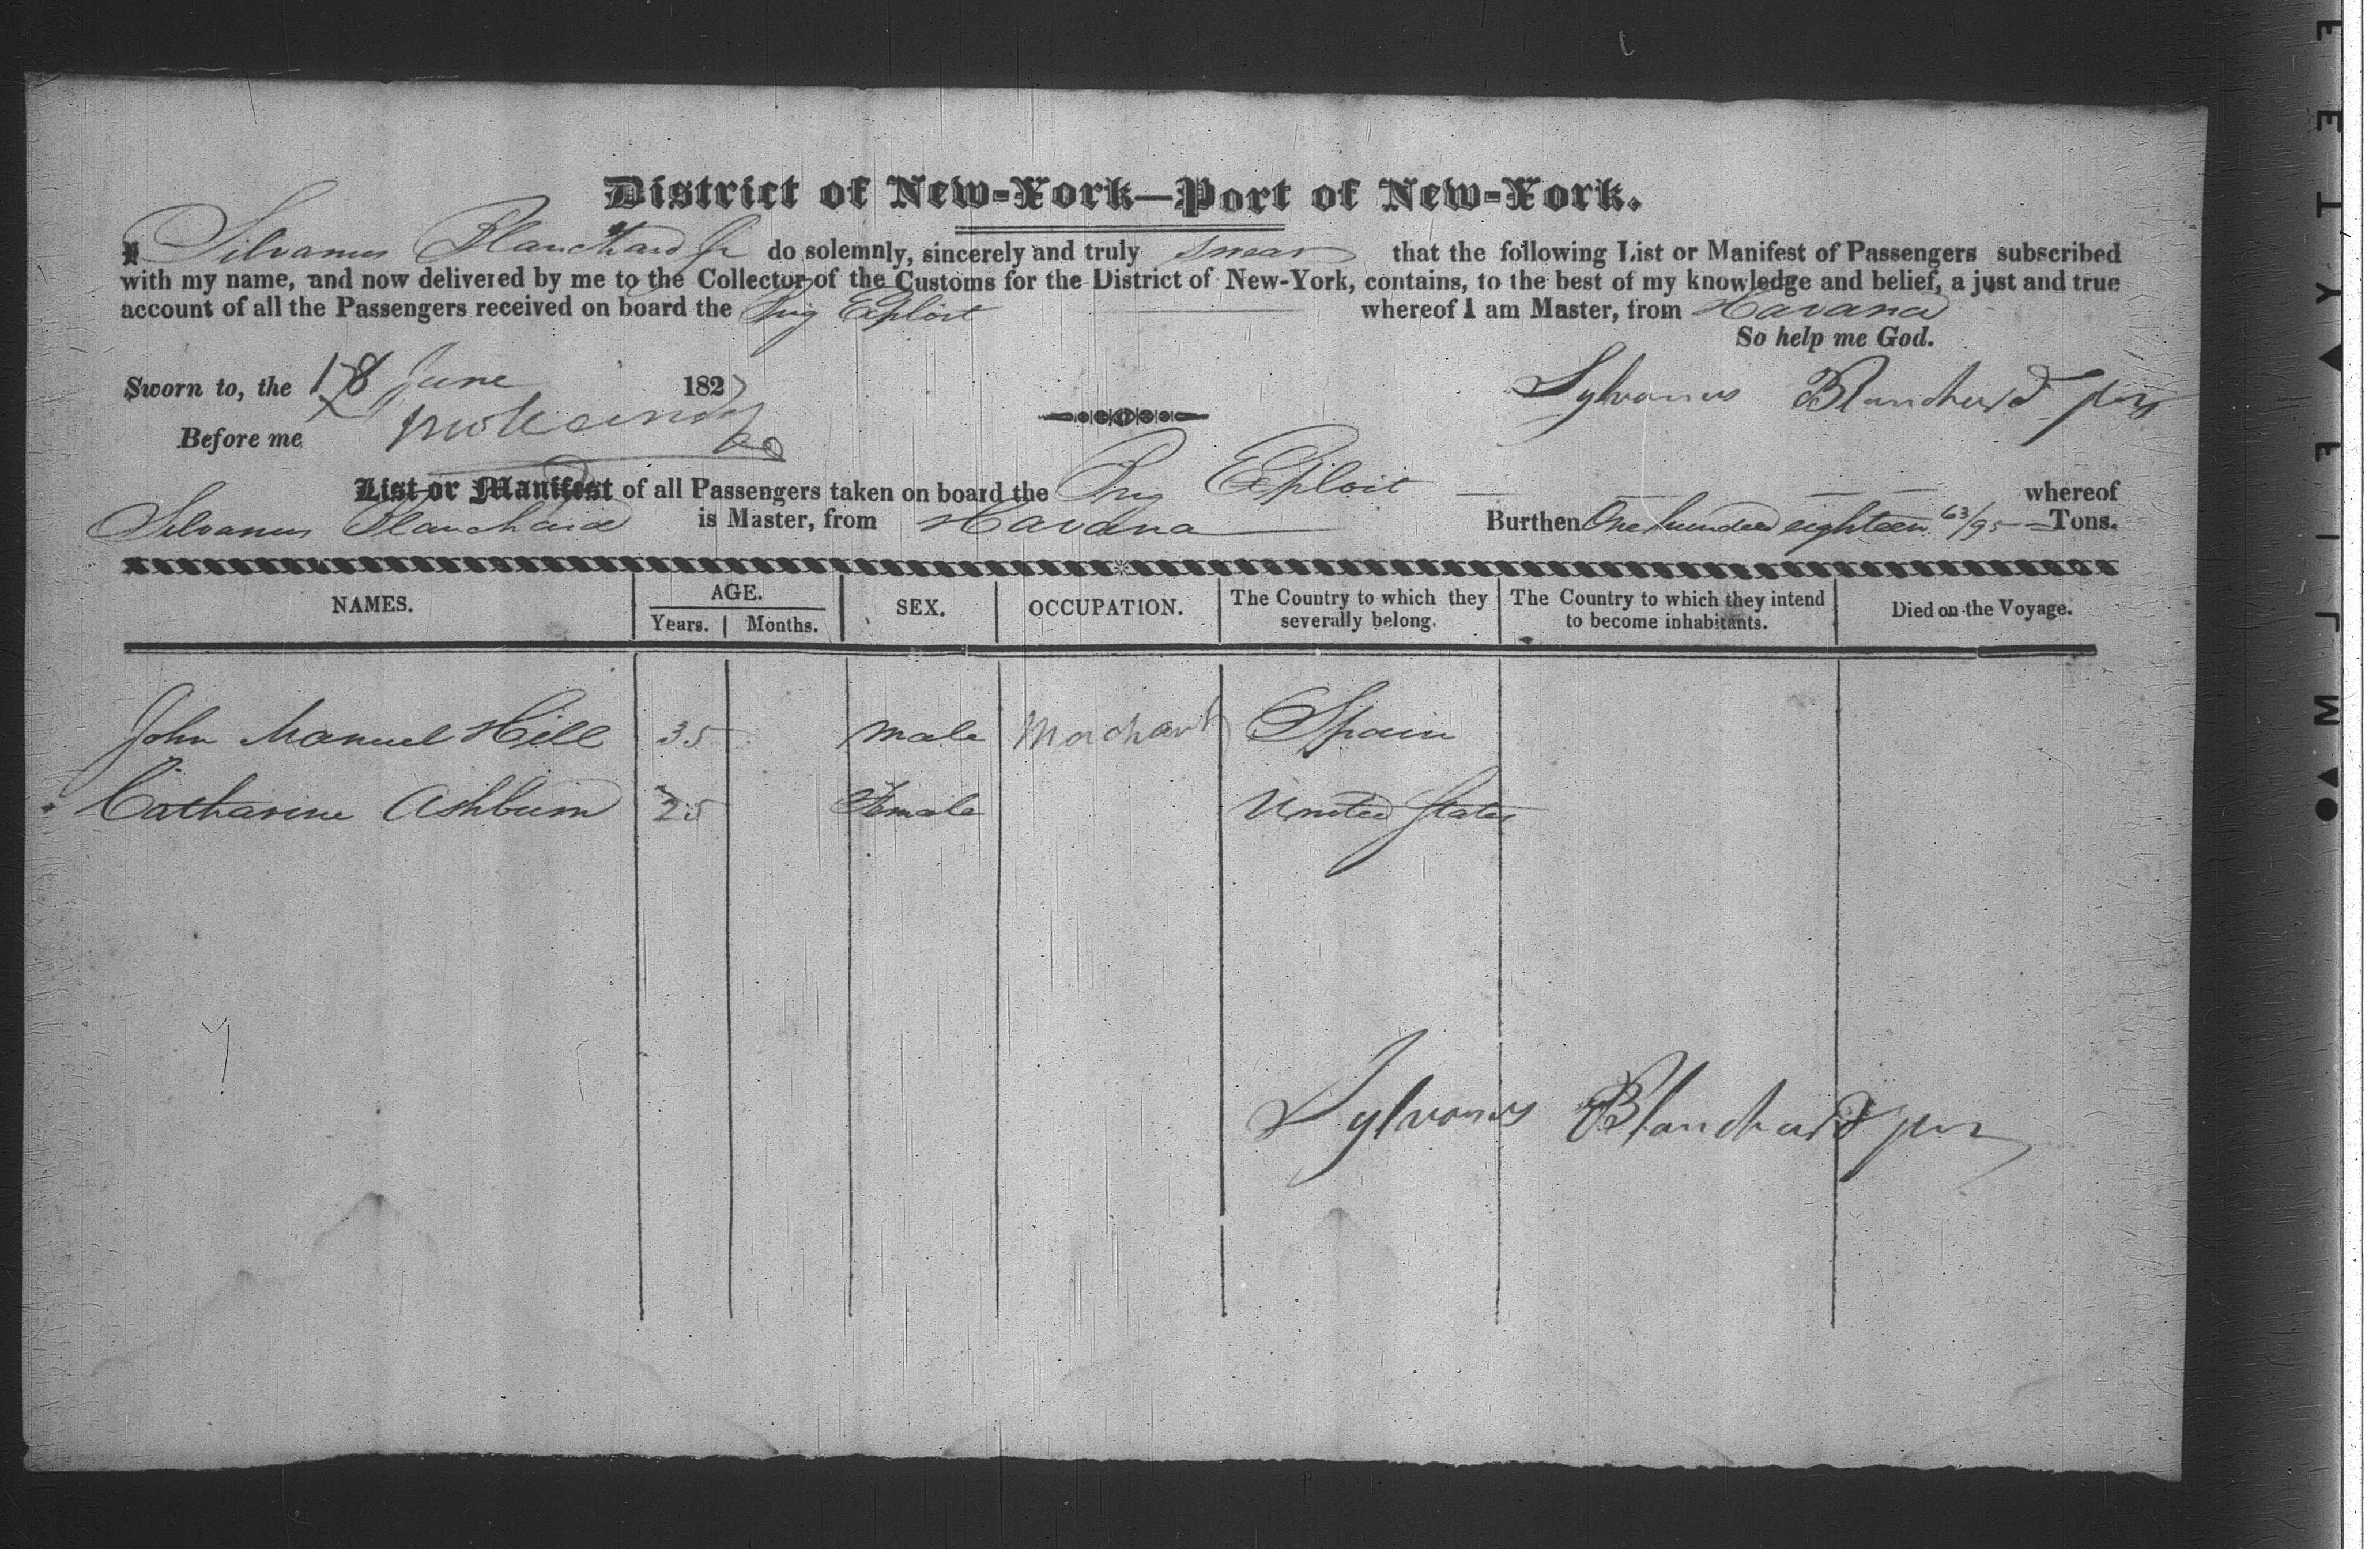 District of New-York—Port of New-York.
I Silvanus Blanchard Jr do solemnly, sincerely and truly swear that the following List or Manifest of Passengers subscribed
with my name, and now delivered by me to the Collector of the Customs for the District of New-York, contains, to the best of my knowledge and belief, a just and true
account of all the Passengers received on board the Brig Exploit whereof I am Master, from Havana
So help me God.
Sworn to, the 18 June 1827
Sylvanus Blanchard Jun
Before me
List or Manifest of all Passengers taken on board the Brig Exploit whereof
Silvanus Blanchard is Master, from Havana Burthen One hundred eighteen 63/95 Tons.
NAMES. AGE. SEX. OCCUPATION. The Country to which they severally belong. The Country to which they intend to become inhabitants. Died on the Voyage.
Years. Months.
John Manuel Hill 35 male Merchant Spain
Catharine Ashburn 25 Female United States
Sylvanus Blanchard jun